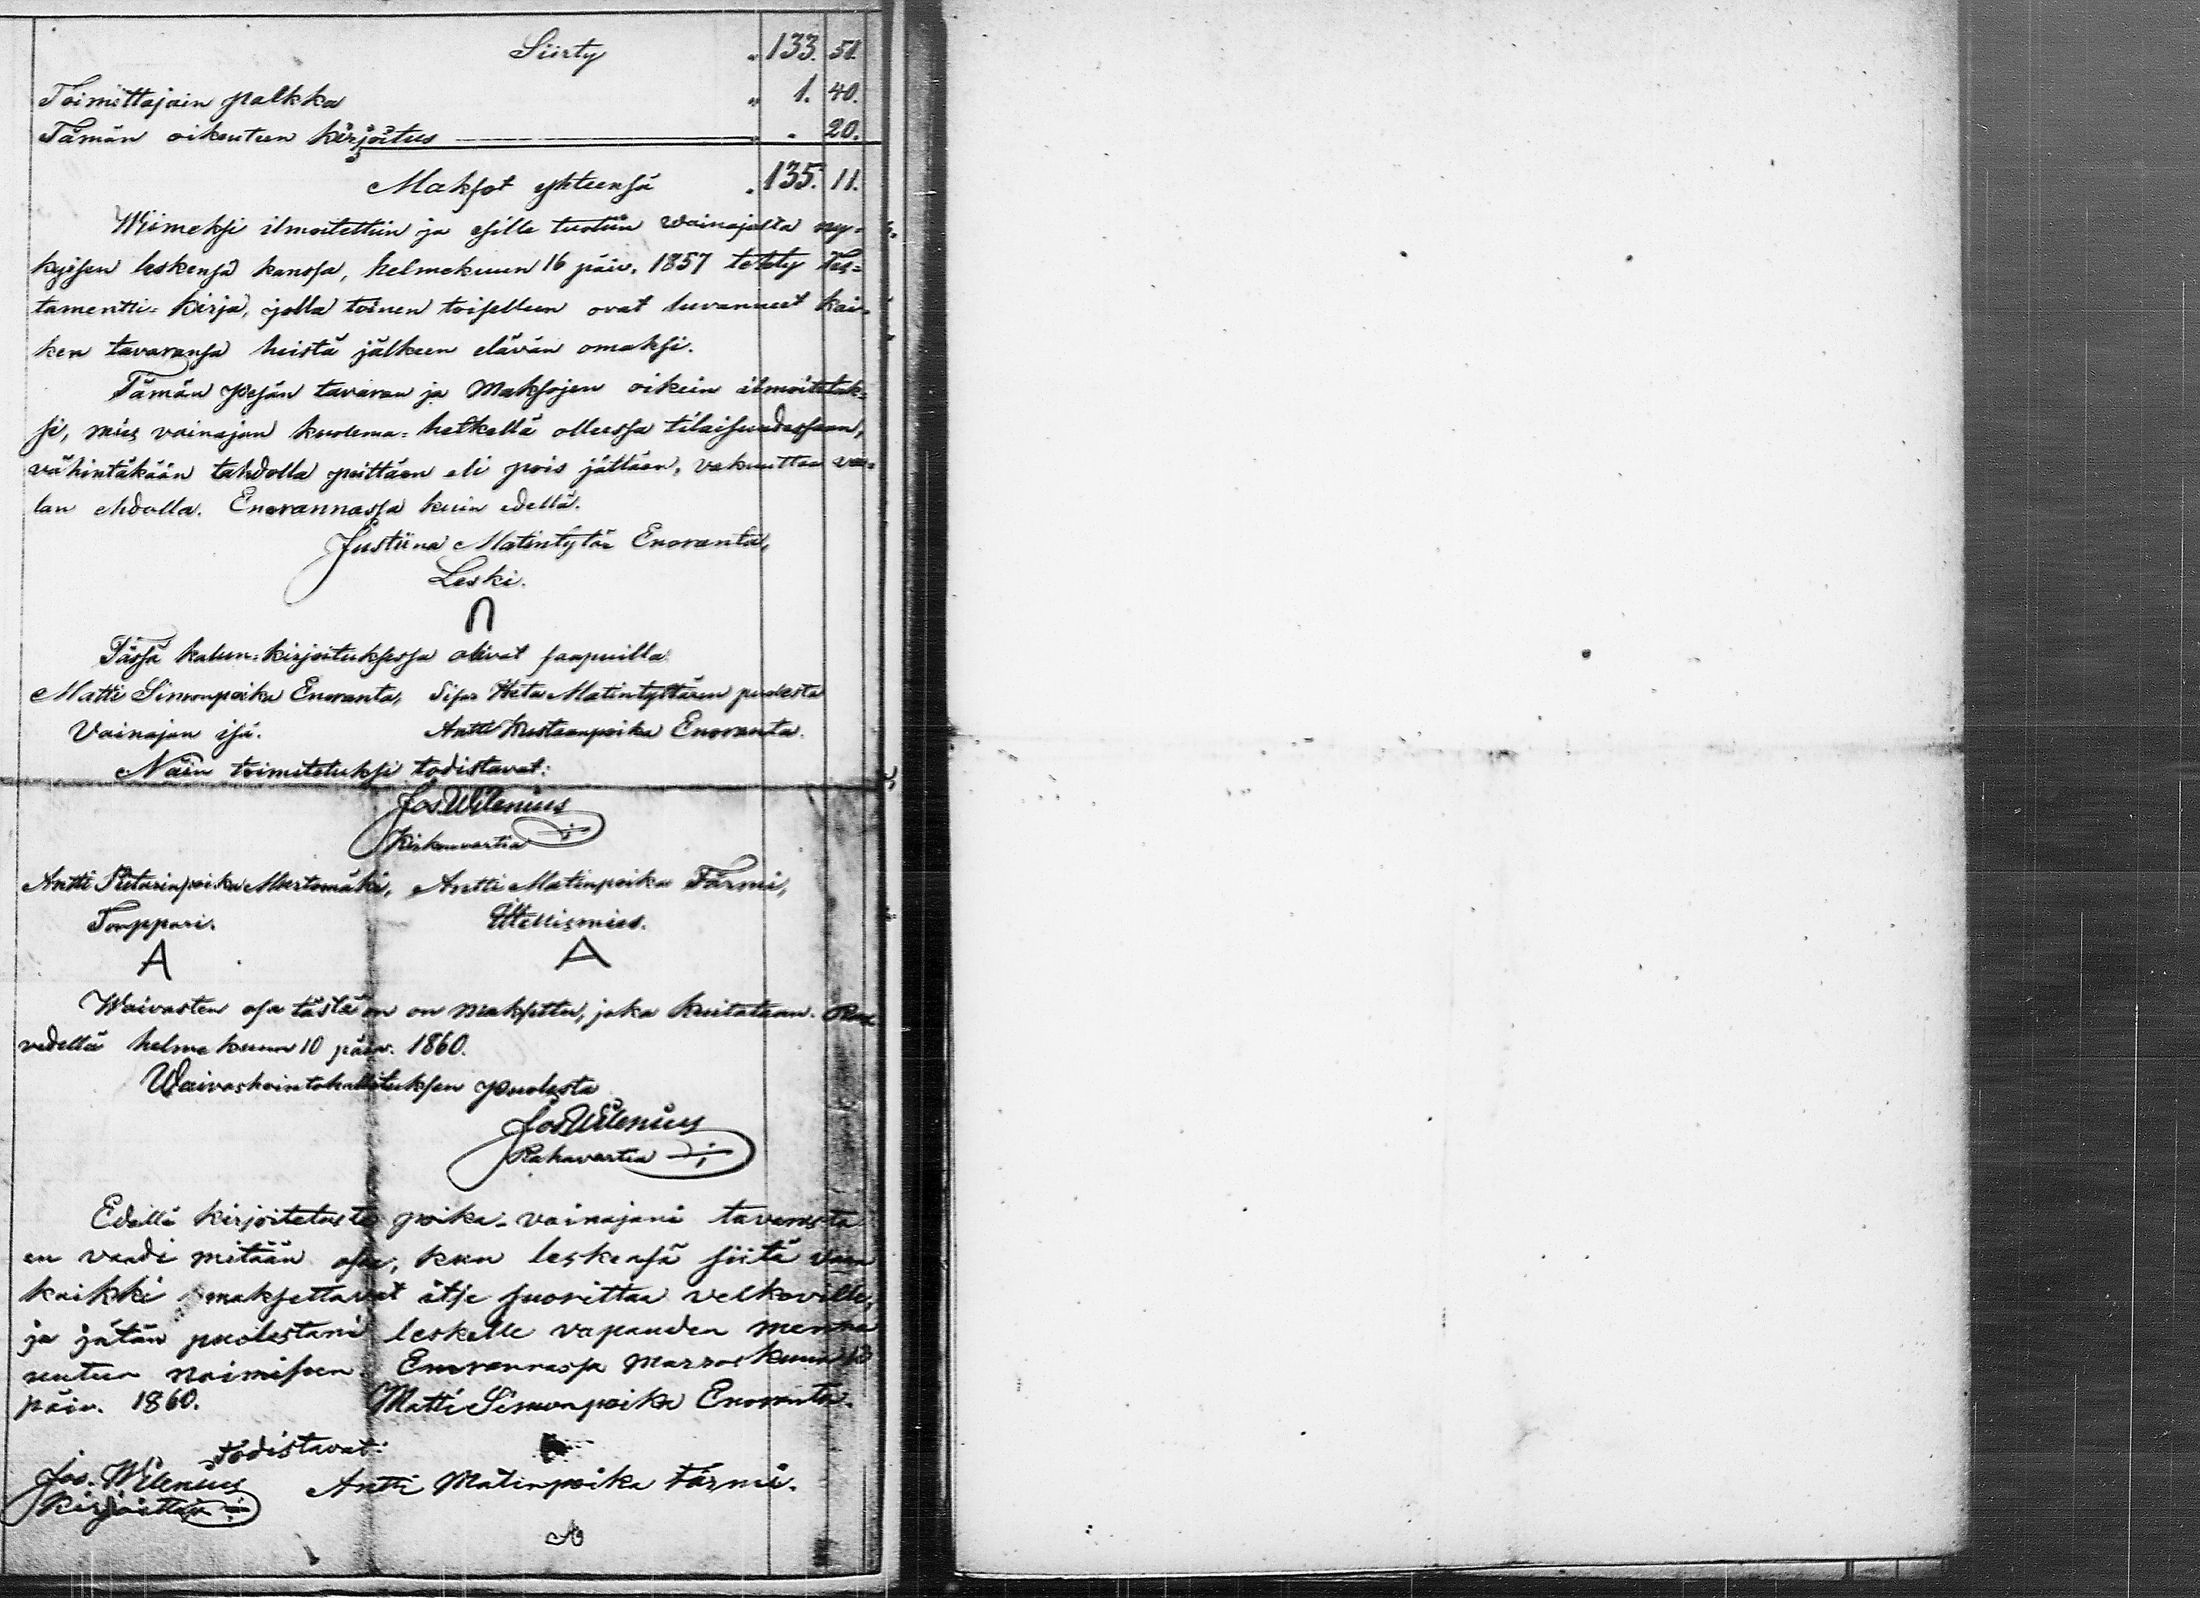 Siirty „ 133. 51.
Toimittajain palkka „ 1. 40.
Tämän oikeuteen kirjoitus „ „ 20.
Maksot yhteensä „ 135. 11.
Wiimeksi ilmoitettiin ja esille tuotiin vainajalta ny-
kyisen leskensä kanssa, helmekuun 16 päiv. 1857 tehty Tes-
tamentti-kirja, jolla toinen toiselleen ovat luvanneet kai-
ken tavaransa heistä jälkeen elävän omaksi.
Tämän pesän tavaran ja Maksojen oikein ilmoitetuk-
si, mies vainajan kuolema-hetkellä ollessa tilaisuudessaan,
vähintäkään tahdolla peittäen eli pois jättäen, vakuuttaa va-
lan ehdolla. Enorannassa kuin edellä.
Justiina Matintytär Enoranta,
Leski.
Tässä kalun-kirjoituksessa olivat saapuilla
Matti Simonpoika Enoranta, Sisar Matintyttären puolesta
Vainajan isä. Antti Kustaanpoika Enoranta.
Näin toimitetuksi todistavat:
Jos. Wilenius
Kirkonvartia
Antti Pietarinpoika Murtomäki, Antti Matinpoika Färmi,
Torppari. Itellismies.
A A
Waivasten osa tästä on maksettu, joka kuitataan.
vedellä helmekuun 10 päiv. 1860.
Waivashointohallituksen puolesta
Jos. Wilenius
Rahavartia
Edellä kirjoitetusta poika-vainajani tavarasta
en vaadi mitään osaa, kun leskensä siitä vaan
kaikki maksettavat itse suorittaa velkoville,
ja jätän puolestani leskelle vapauden mennä
uuteen naimiseen. Enorannassa marraskuun
päiv. 1860. Matti Simonpoika Enoranta.
Todistavat:
Jos. Wilenius Antti Matinpoika Färmi.
Kirjoittaja
A